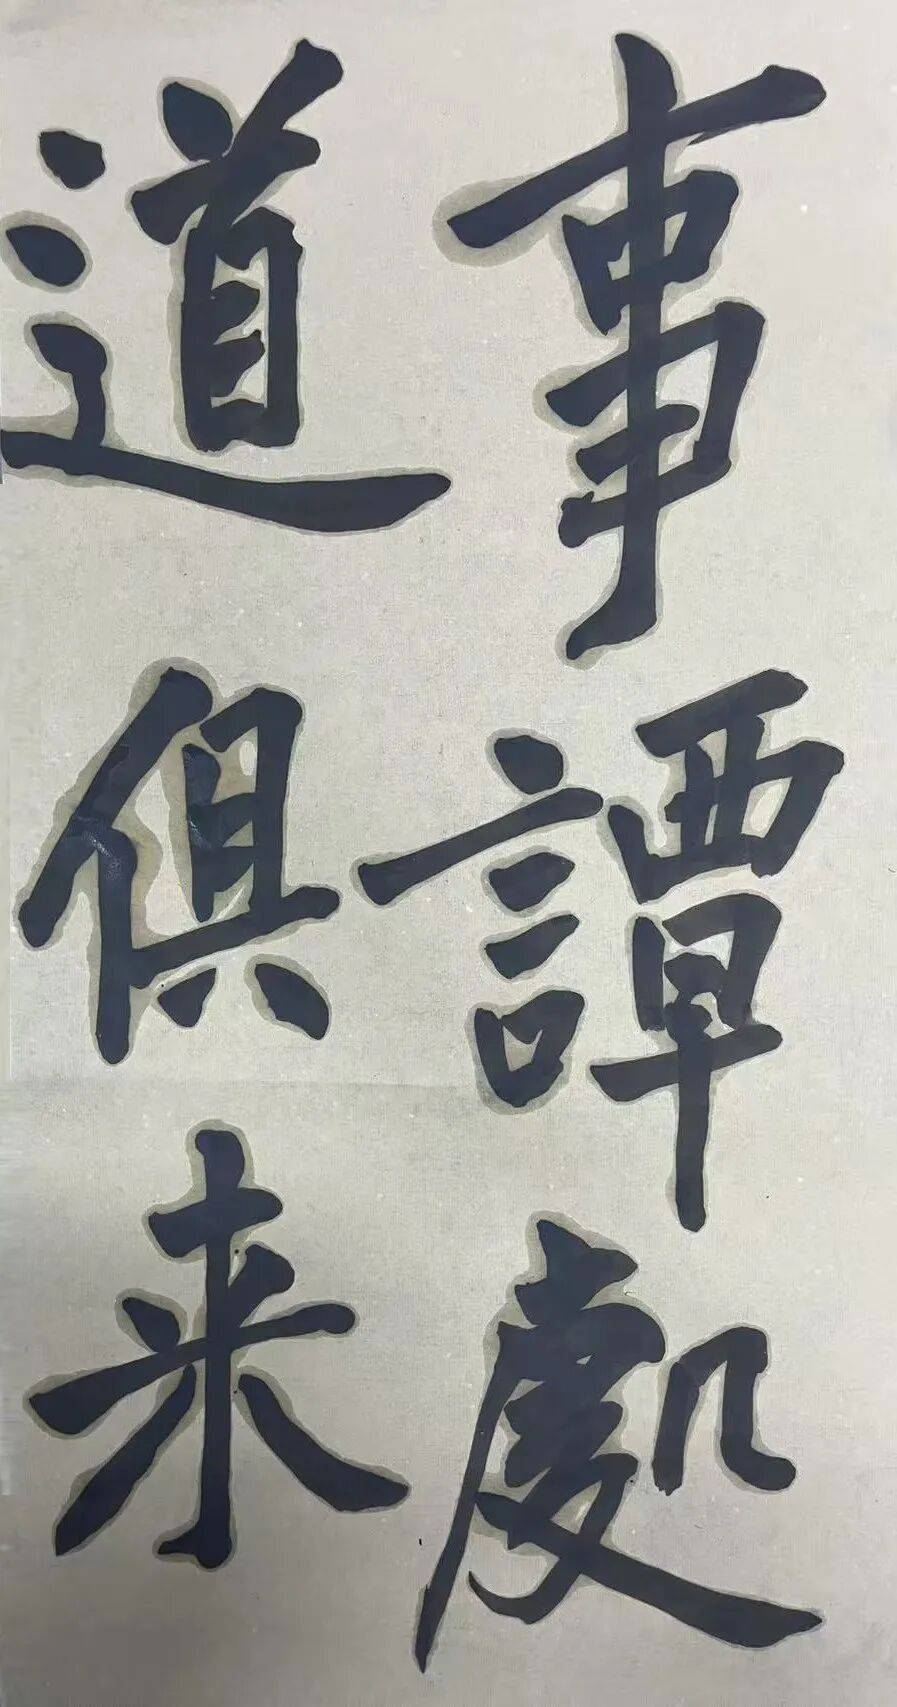 事譚處
道俱来